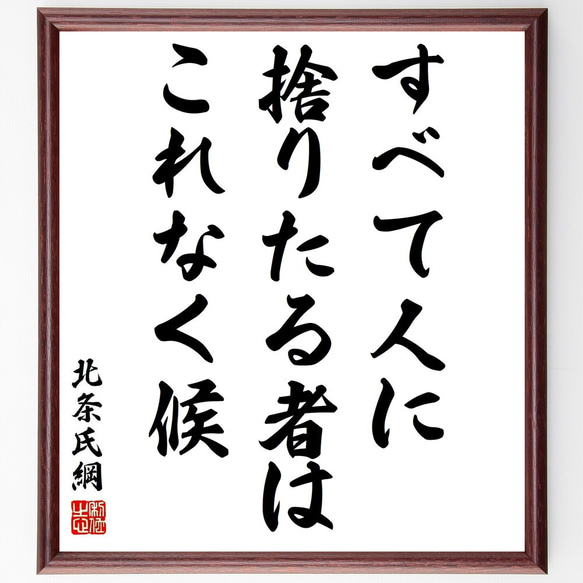 すべて人に
捨りたる者は
これなく候
北条氏綱